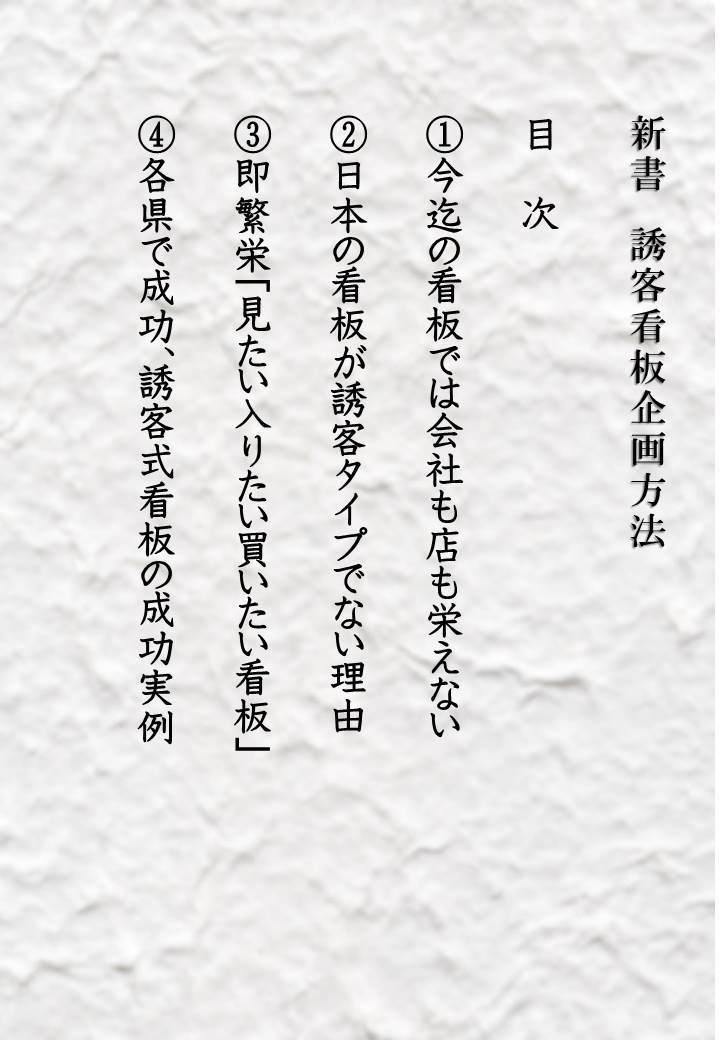 新書　誘客看板企画方法
目　次
①今迄の看板では会社も店も栄えない
②日本の看板が誘客タイプでない理由
③即繁栄「見たい入りたい買いたい看板」
④各県で成功、誘客式看板の成功実例